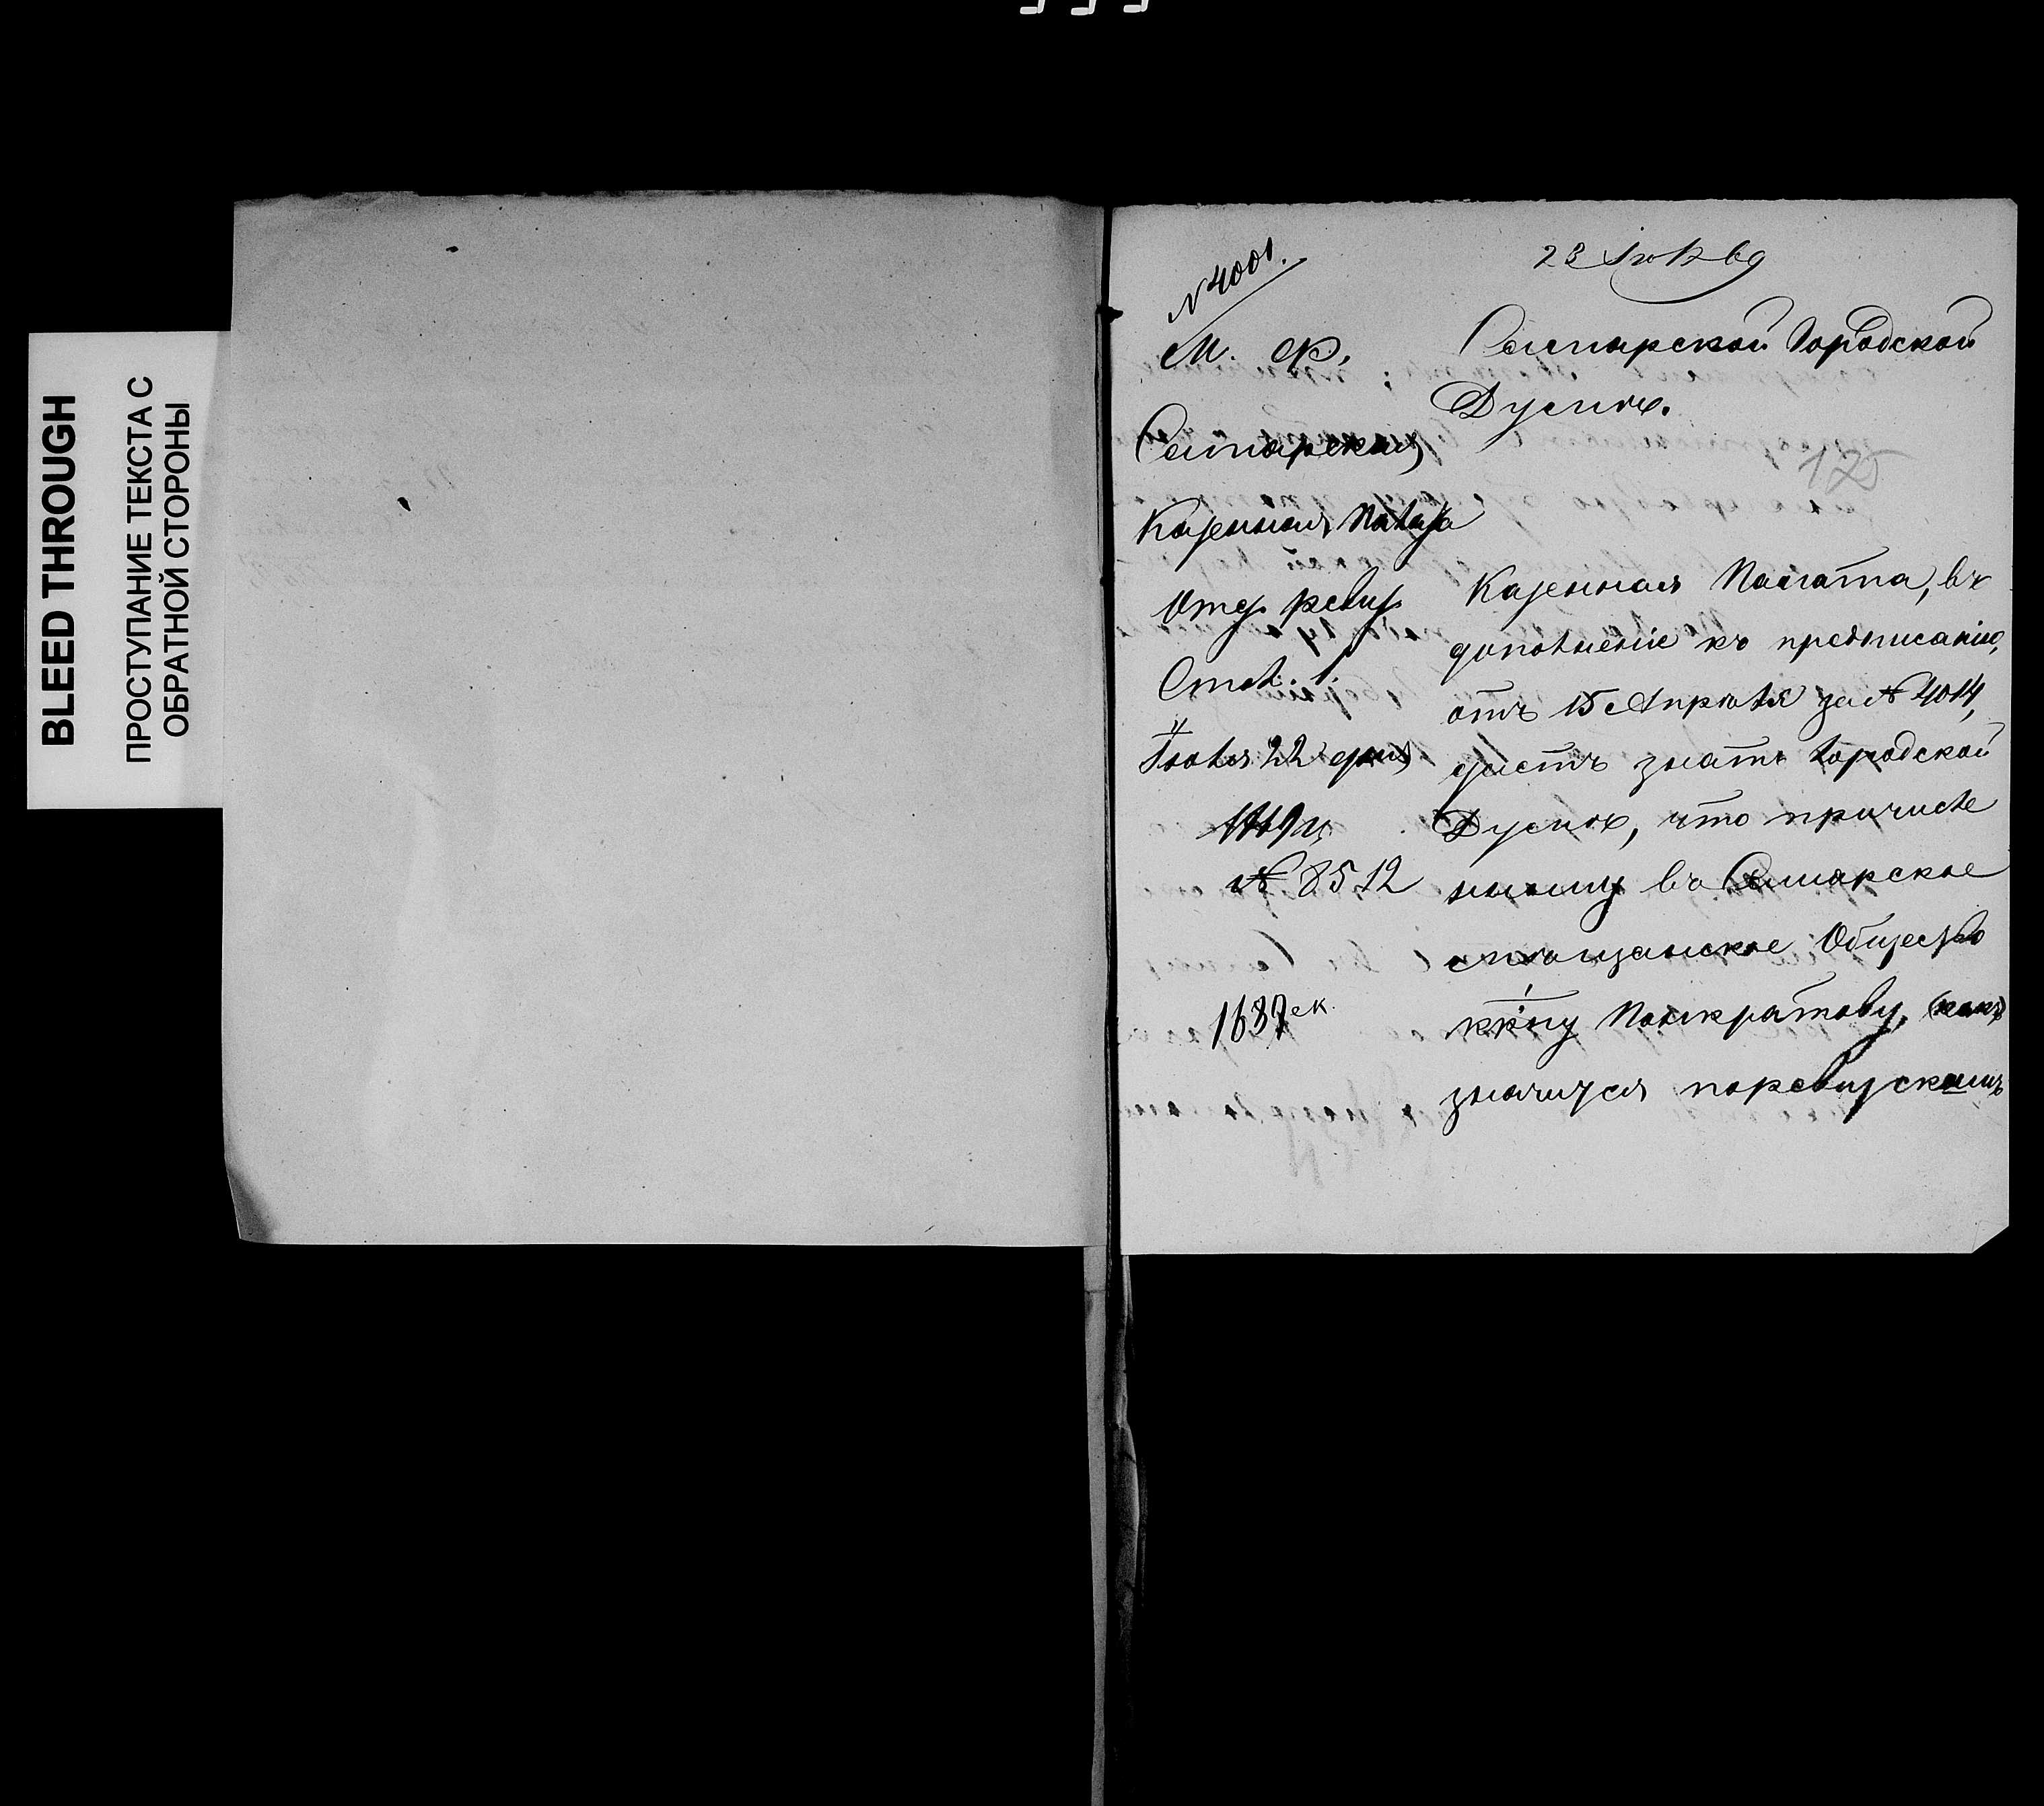 BLEED THROUGH
ПРОСТУПАНИЕ ТЕКСТА С
ОБРАТНОЙ СТОРОНЫ
N 4001.
М. Ф.
Самарская
Казенная Палата
Отд. ревиз.
Стол. 1.
Іюля 22 дня
1869 г.
№ 8512
1687
23 Іюл 69
Самарской Городской
Думѣ.
125
Казенная Палата, въ
дополненіе къ предписанію,
отъ 15 Апрѣля за № 4014,
даетъ знать Городской
Думѣ, что причисле
нному въ Самарское
мѣщанское Общество
Панкратову, (какъ
значится по ревизскимъ